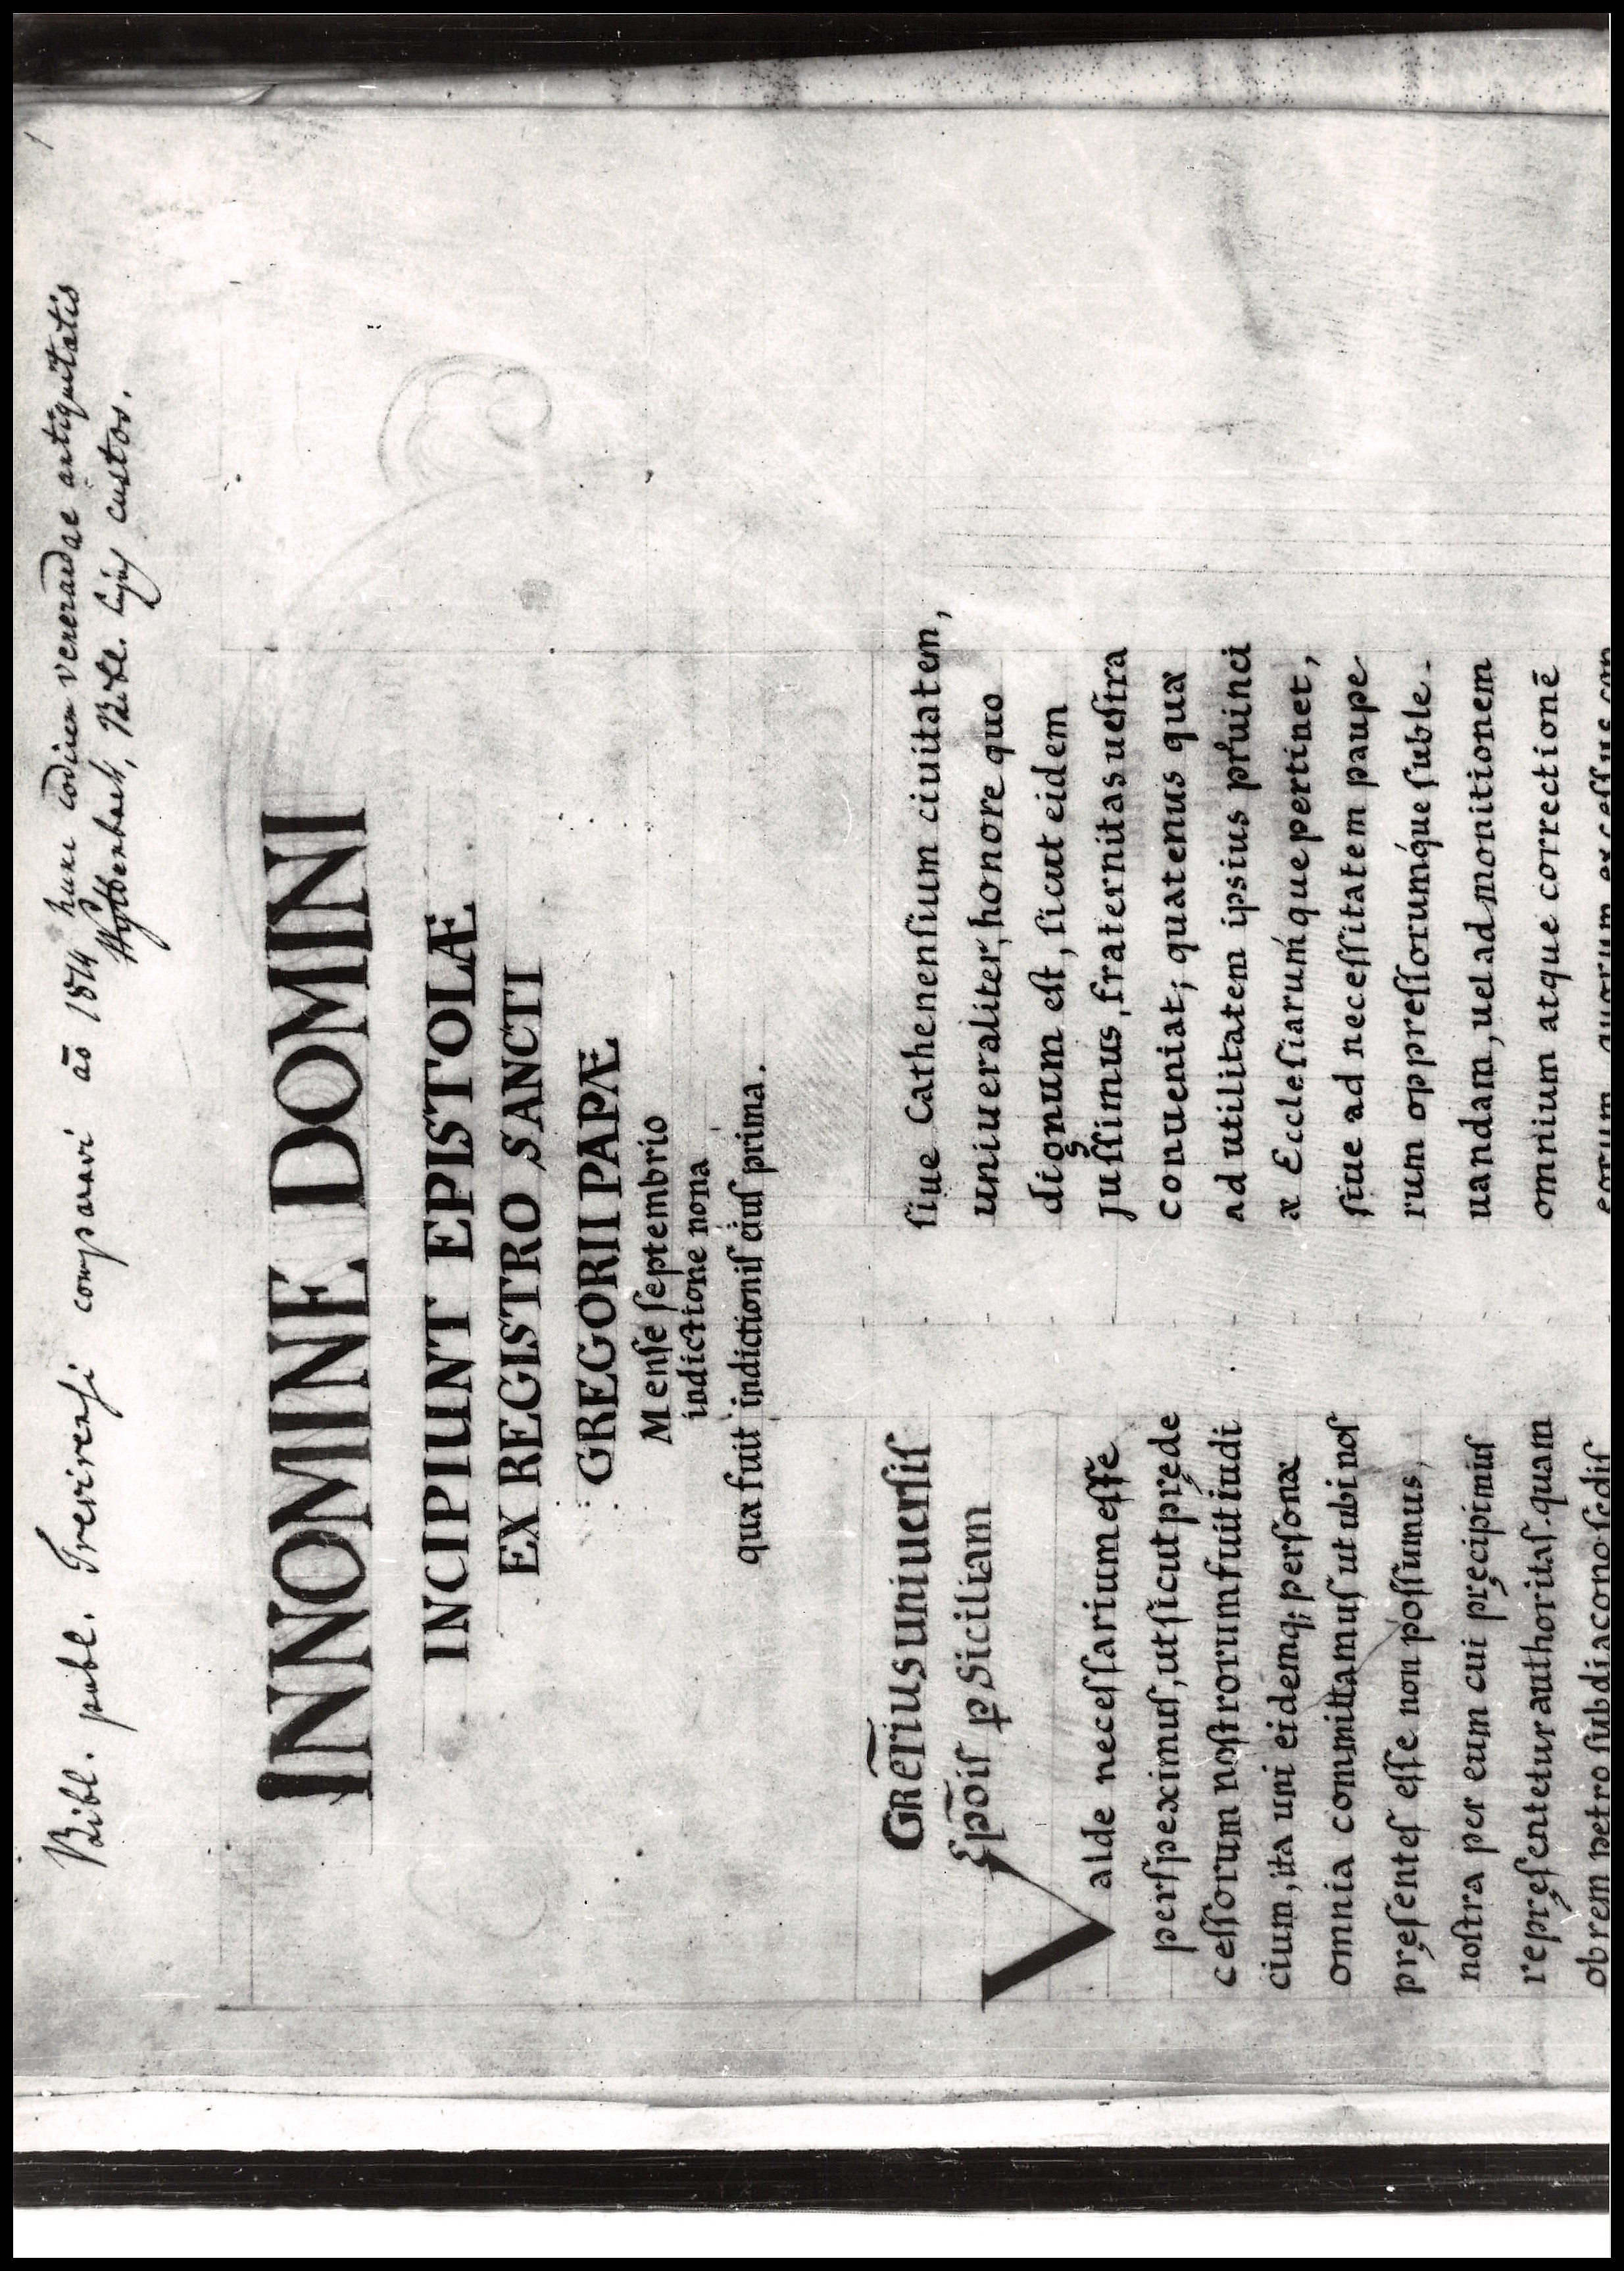 Bibl. publ. Trevirensi comparavi aō 1814 hunc codicem venerandae antiquitatis
Wyttenbach, Bibl. hujus custos.
1
INNOMINE DOMINI
INCIPIUNT EPISTOLÆ
EX REGISTRO SANCTI
GREGORII PAPÆ
Mense ſeptembrio
indictione nona
quæ fuit indictioniſ eiuſ prima.
GREḠRIUS uniuerſiſ
Ep̄oiſ ꝑ Siciliam
Valde neceſſarium eſſe
perſpeximuſ, ut ſicut pręde
ceſſorum noſtrorum fuit iudi
cium, ita uni eidemq; perſonæ
omnia committamuſ ut ubi noſ
pręſenteſ eſſe non poſſumus,
noſtra per eum cui pręcipimuſ
repręſentetur authoritaſ. quam
ob rem petro ſubdiacono ſediſ
ſiue Cathenenſium ciuitatem,
uniueraliter, honore quo
dignum eſt, ſicut eidem
Juſſimus, fraternitas ueſtra
conueniat; quatenus quæ
ad utilitatem ipsius pruinci
æ Eccleſiaruḿque pertinet,
ſiue ad neceſſitatem paupe
rum oppreſſoruḿque ſuble-
uandam, uel admonitionem
omnium atque correctionē
eorum quorum exceſſus con